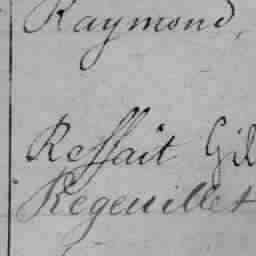 Raymond,
Reffait Gil
Regeuillet